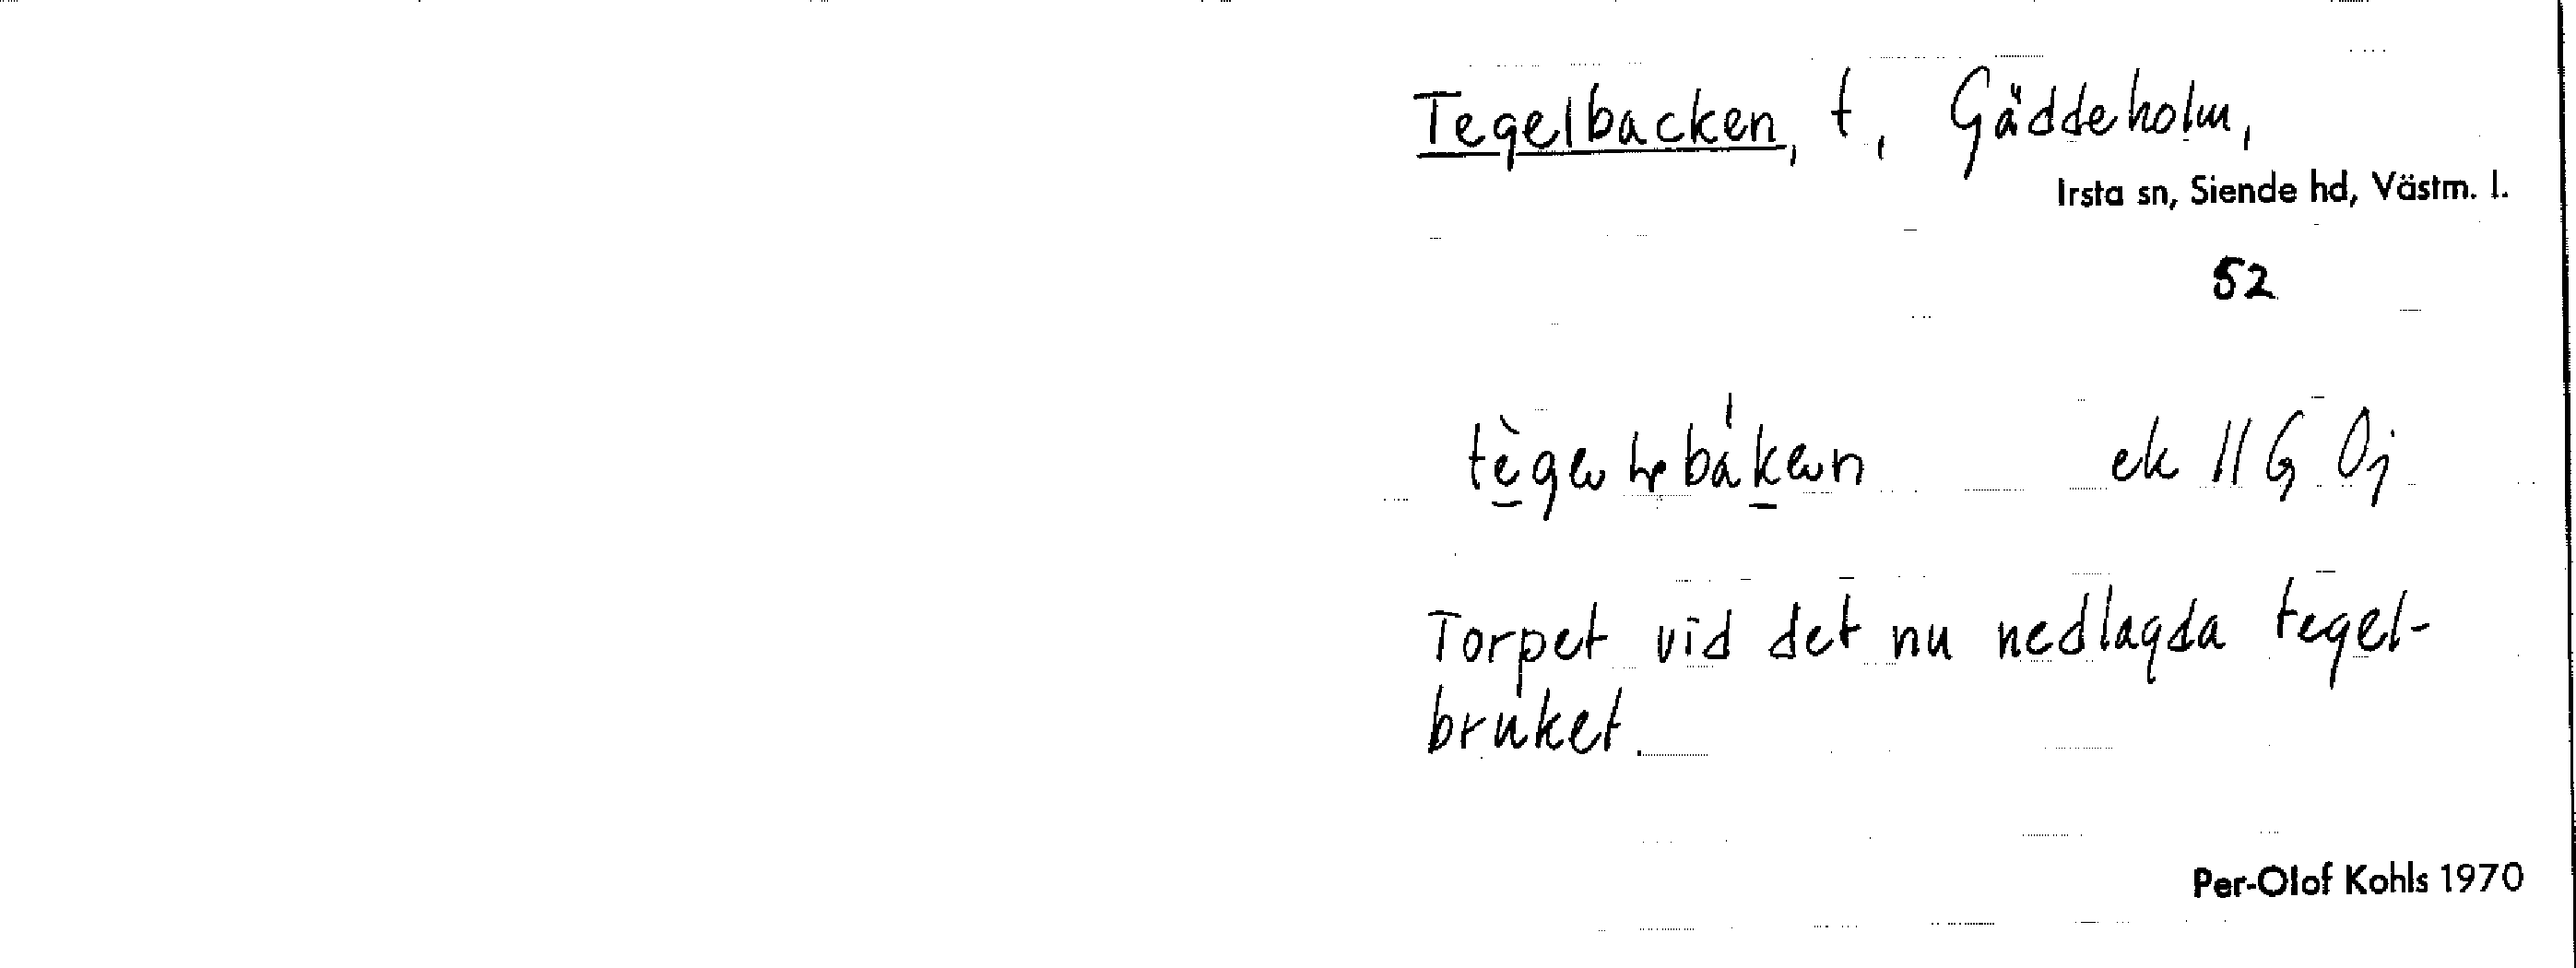 Tegelbacken, t, Gäddeholm,
Irsta sn, Siende hd, Västm. l.
52
ek 11 G Oj
Torpet vid det nu nedlagda tegel-
bruket.
Per-Olof Kohls 1970